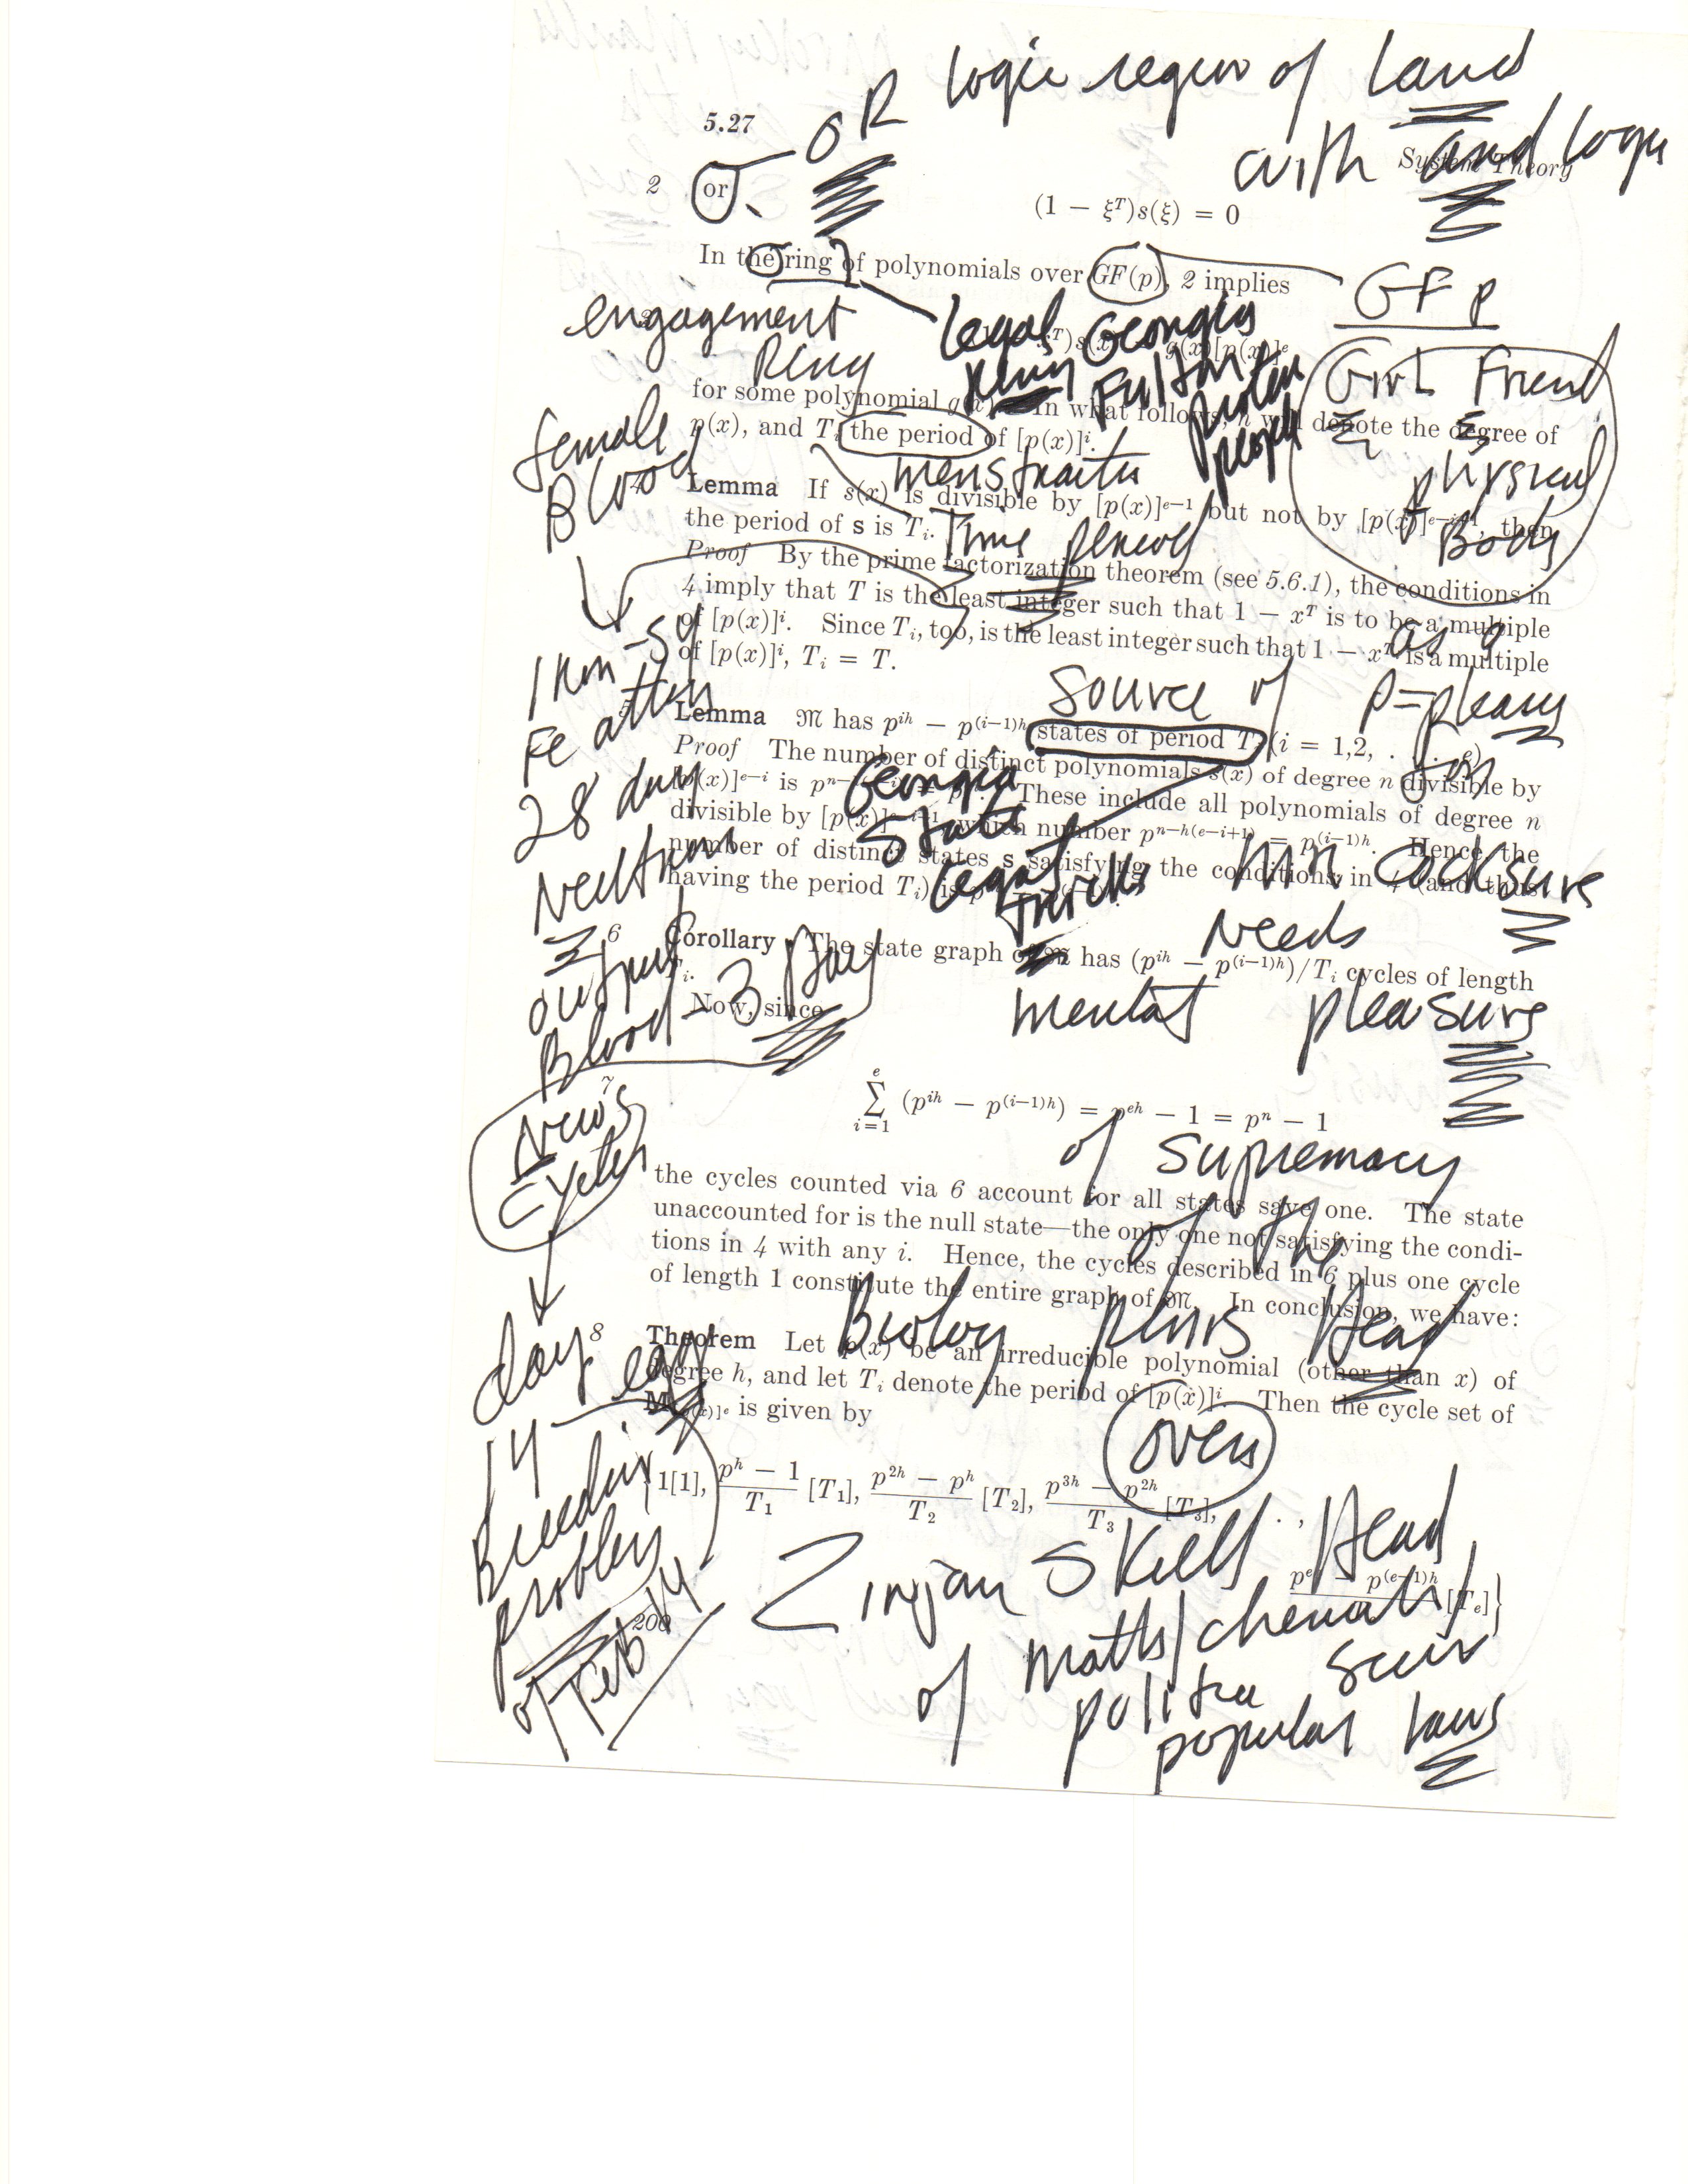 OR logic region of Land
5.27
with and logic
System Theory
2 or
(1 − ξᵀ)s(ξ) = 0
In the ring of polynomials over GF(p), 2 implies
GFp
engagement
Ring
Legal Georgia
Fulton
Girl Friend
for some polynomial g(x). In what follows, h will denote the degree of
p(x), and Tᵢ the period of [p(x)]ⁱ.
people
physical
Body
female
Blood
Lemma If s(x) is divisible by [p(x)]ᵉ⁻ⁱ but not by [p(x)]ᵉ⁻ⁱ⁺¹, then
the period of s is Tᵢ.
Time period
Proof By the prime factorization theorem (see 5.6.1), the conditions in
4 imply that T is the least integer such that 1 − xᵀ is to be a multiple
of [p(x)]ⁱ. Since Tᵢ, too, is the least integer such that 1 − xᵀ is a multiple
of [p(x)]ⁱ, Tᵢ = T.
as a
Source of
Fe
Lemma 𝔐 has pⁱʰ − p⁽ⁱ⁻¹⁾ʰ states of period Tᵢ (i = 1,2, . . . , e)
Proof The number of distinct polynomials s(x) of degree n divisible by
These include all polynomials of degree n
divisible by
which number pⁿ⁻ʰ⁽ᵉ⁻ⁱ⁺¹⁾ = p⁽ⁱ⁻¹⁾ʰ. Hence the
number of distinct states s satisfying the conditions in 4 (and thus
having the period Tᵢ) is
Georgia
State
Legal
Tricks
28 day
Mr Cocksure
Needs
mental pleasure
6 Corollary The state graph of 𝔐 has (pⁱʰ − p⁽ⁱ⁻¹⁾ʰ)/Tᵢ cycles of length
Tᵢ.
Now, since
output
Blood - 3 Day
7
∑ᵢ₌₁ᵉ (pⁱʰ − p⁽ⁱ⁻¹⁾ʰ) = pᵉʰ − 1 = pⁿ − 1
News
Cycles
of Supremacy
of the
the cycles counted via 6 account for all states save one. The state
unaccounted for is the null state—the only one not satisfying the condi-
tions in 4 with any i. Hence, the cycles described in 6 plus one cycle
of length 1 constitute the entire graph of 𝔐. In conclusion, we have:
Biology penis Head
8 Theorem Let p(x) be an irreducible polynomial (other than x) of
degree h, and let Tᵢ denote the period of [p(x)]ⁱ. Then the cycle set of
is given by
day
14 egg
Breeding
problem
of Feb 14
over
{1[1], (pʰ − 1)/T₁ [T₁], (p²ʰ − pʰ)/T₂ [T₂], (p³ʰ − p²ʰ)/T₃ [T₃], . . . ,
[Tₑ]}
Zinjan Skull Head
of maths/
popular laws
200